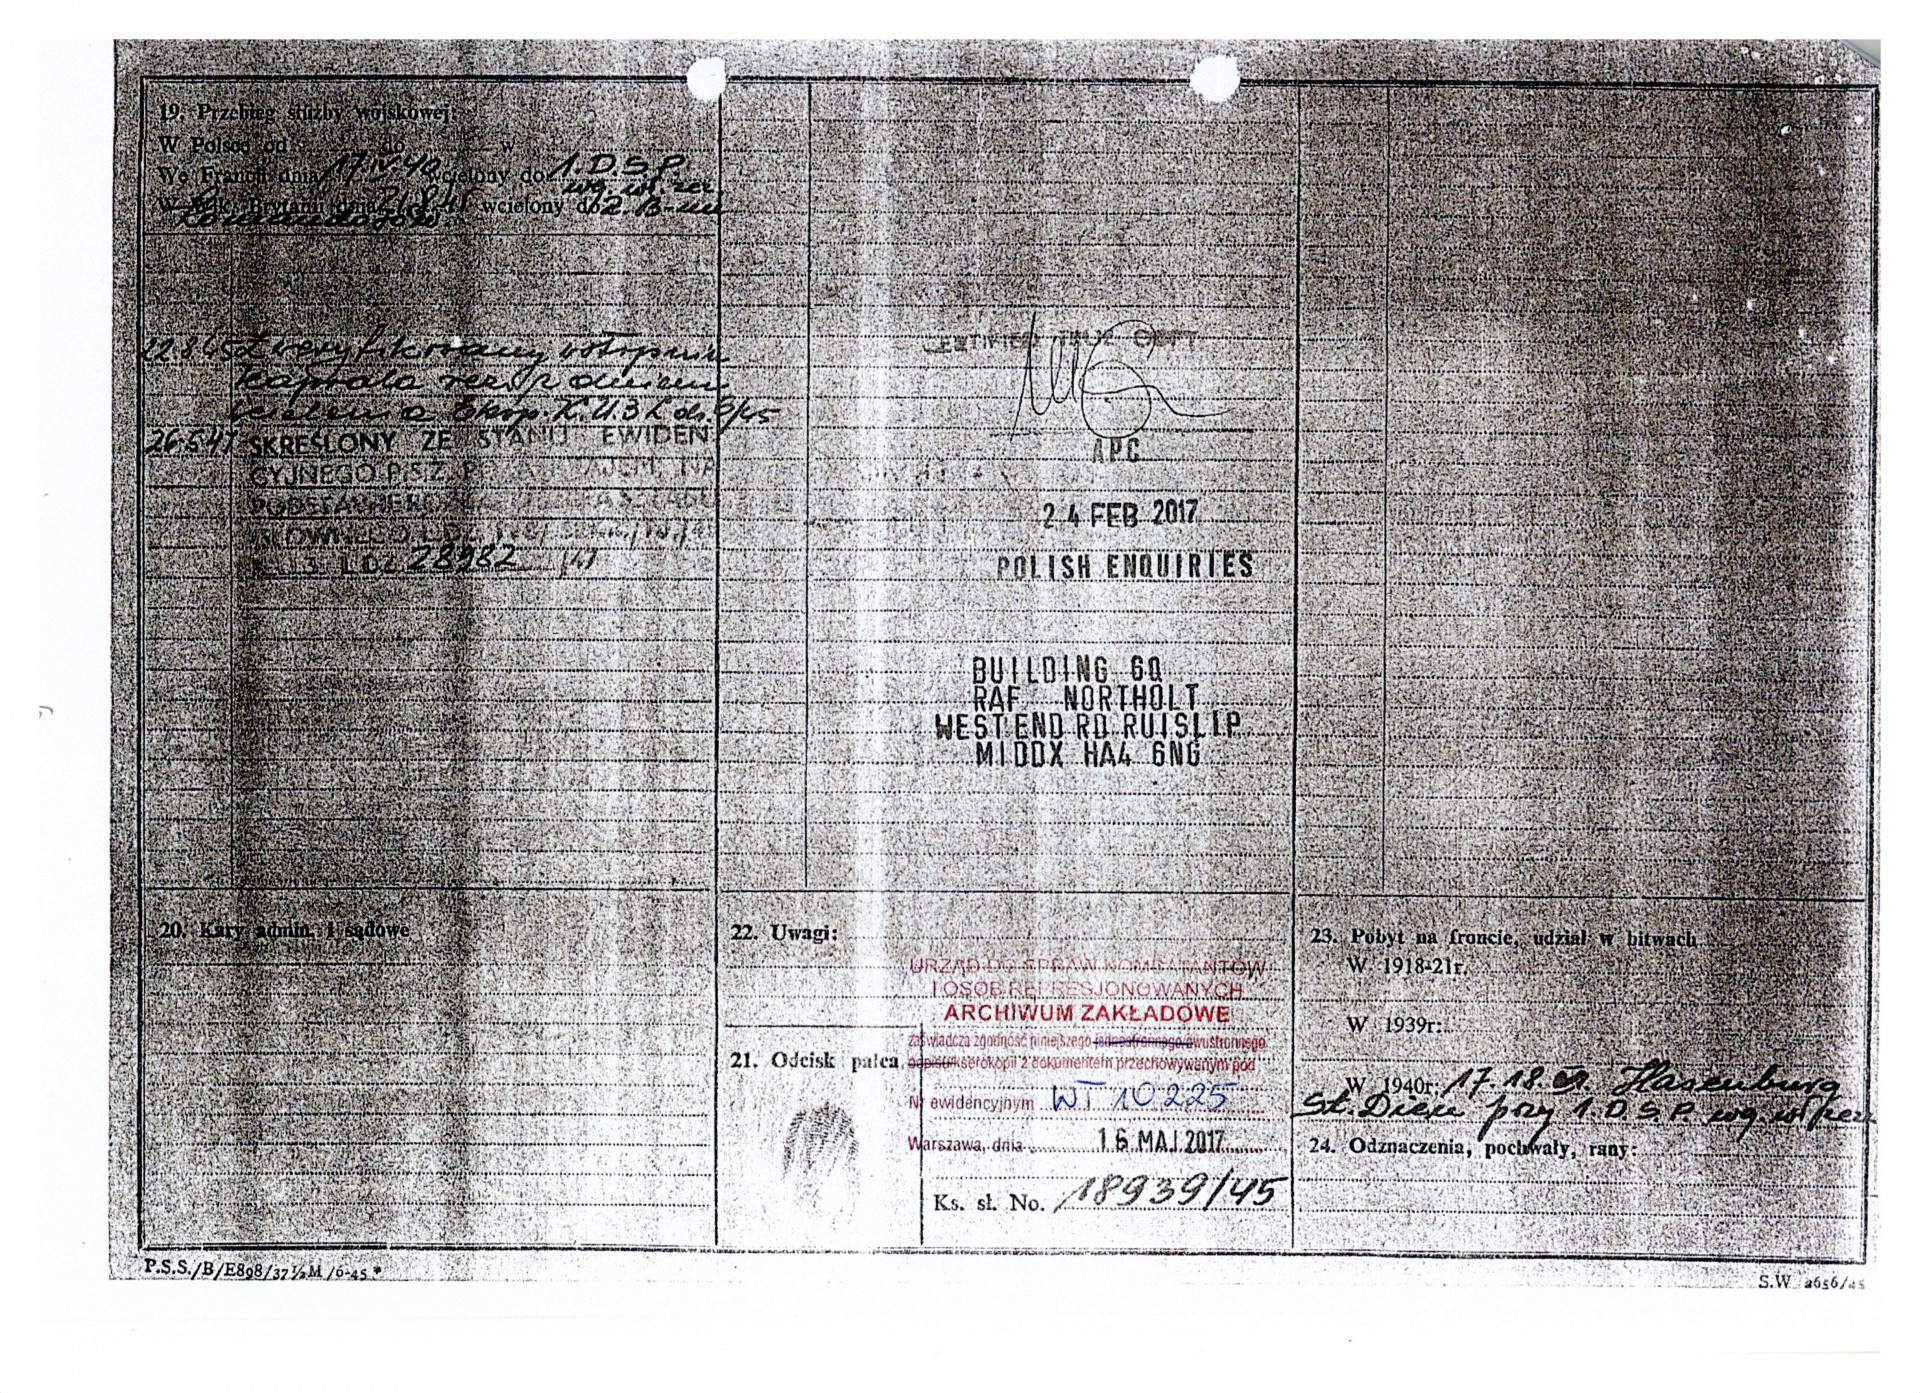 19. Przebieg służby wojskowej:
W Polsce od do w
We Francji dnia 17.IV.40 wcielony do 1.D.S.P.
wg. wł. zez.
W Wlk. Brytanii dnia 2/8.45 wcielony do 2. B-nu
Komandosów
22.8.45 Zweryfikowany w stopniu
kaprala rez. z dniem
wcielenia Eksp. K.U.3 L.ds. 9/45
26.5.47 SKREŚLONY ZE STANU EWIDEN
CYJNEGO P.S.Z.
L.DZ. 28982 /47
CERTIFIED TRUE COPY
APC
24 FEB 2017
POLISH ENQUIRIES
BUILDING 60
RAF NORTHOLT
WEST END RD RUISLIP
MIDDX HA4 6NG
20. Kary admin. i sądowe
22. Uwagi:
URZĄD DO SPRAW KOMBATANTÓW
I OSÓB REPRESJONOWANYCH
ARCHIWUM ZAKŁADOWE
zaświadcza zgodność niniejszego jednostronnego/dwustronnego
odpisu/kserokopii z dokumentem przechowywanym pod
Nr ewidencyjnym WT 10225
Warszawa, dnia 16. MAJ 2017
21. Odcisk palca
Ks. sł. No. 18939/45
23. Pobyt na froncie, udział w bitwach
W 1918-21r.
W 1939r:
W 1940r: 17.18.VI. Hasenburg
St. Dieu przy 1.D.S.P. wg. wł. zez.
24. Odznaczenia, pochwały, rany:
P.S.S./B/E898/37½M/6-45
S.W. 2656/45